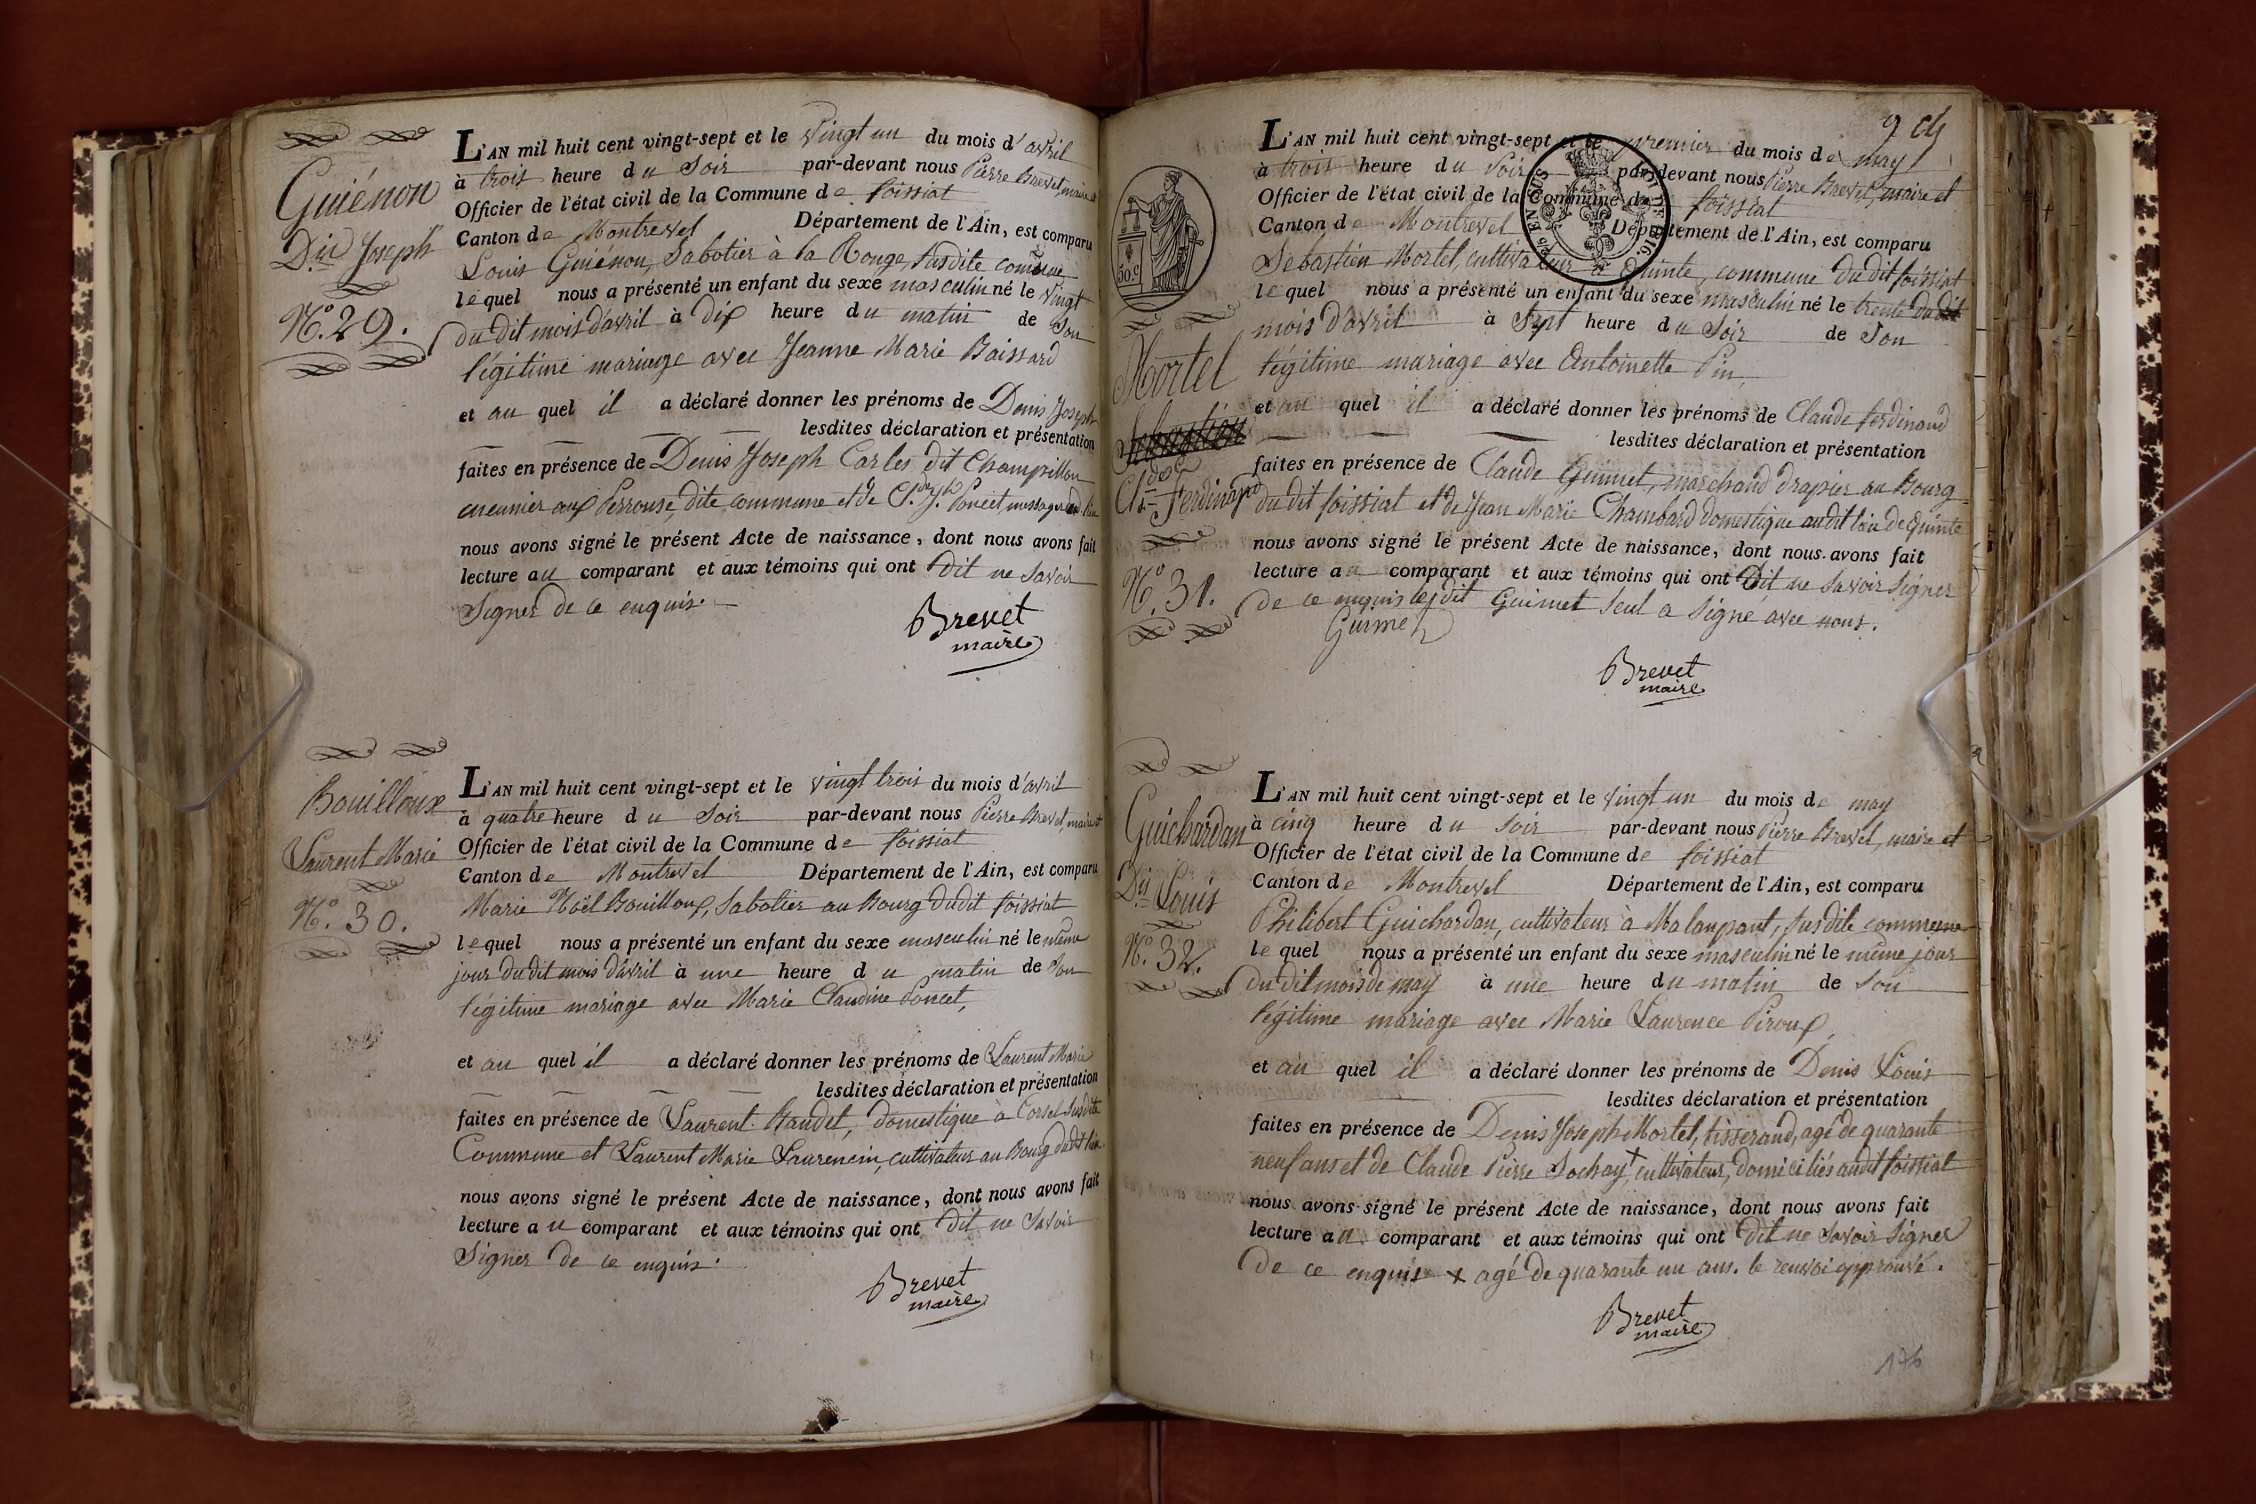 Guiénon
Dis Joseph
N.° 29.
L'AN mil huit cent vingt-sept et le vingt un du mois d'avril
à trois heure du soir par-devant nous Pierre Brevet, maire et
Officier de l'état civil de la Commune de foissiat
Canton de Montrevel Département de l'Ain, est comparu
Louis Guiénon, Sabotier à la Rouge, susdite commune
lequel nous a présenté un enfant du sexe masculin né le vingt
du dit mois d'avril à dix heure du matin de son
légitime mariage avec Jeanne Marie Boissard
et au quel il a déclaré donner les prénoms de Denis Joseph
lesdites déclaration et présentation
faites en présence de Denis Joseph Carles dit Champrillon
meunier aux Perrouse, dite commune et de Poncet messager
nous avons signé le présent Acte de naissance, dont nous avons fait
lecture au comparant et aux témoins qui ont dit ne savoir
signer de ce enquis.
Brevet
maire
Bouilloux
Laurent Marie
N.° 30.
L'AN mil huit cent vingt-sept et le vingt trois du mois d'avril
à quatre heure du soir par-devant nous Pierre Brevet, maire et
Officier de l'état civil de la Commune de foissiat
Canton de Montrevel Département de l'Ain, est comparu
Marie Noël Bouilloux, Sabotier au Bourg dudit foissiat
lequel nous a présenté un enfant du sexe masculin né le même
jour du dit mois d'avril à une heure du matin de son
légitime mariage avec Marie Claudine Poncet,
et au quel il a déclaré donner les prénoms de Laurent Marie
lesdites déclaration et présentation
faites en présence de Laurent Naudet, domestique à Corsel susdite
Commune et Laurent Marie Laurencin, cultivateur au Bourg dudit lieu.
nous avons signé le présent Acte de naissance, dont nous avons fait
lecture au comparant et aux témoins qui ont dit ne savoir
signer de ce enquis.
Brevet
maire
50.c
9
Mortel
Sebastien
Cl.de Ferdinand
N.° 31.
L'AN mil huit cent vingt-sept et le premier du mois de may
à trois heure du soir par-devant nous Pierre Brevet, maire et
Officier de l'état civil de la Commune de foissiat
Canton de Montrevel Département de l'Ain, est comparu
Sebastien Mortel, cultivateur à Quinte, commune du dit foissiat
lequel nous a présenté un enfant du sexe masculin né le trente du dit
mois d'avril à sept heure du soir de son
légitime mariage avec Antoinette Pin,
et au quel il a déclaré donner les prénoms de Claude ferdinand
lesdites déclaration et présentation
faites en présence de Claude Guimet, marchand drapier au Bourg
du dit foissiat et de Jean Marie Chambard domestique audit lieu de Quinte
nous avons signé le présent Acte de naissance, dont nous avons fait
lecture au comparant et aux témoins qui ont dit ne savoir signer
de ce enquis ledit Guimet seul a signé avec nous.
Guimet
Brevet
maire
Guichardan
Dis Louis
N.° 32.
L'AN mil huit cent vingt-sept et le vingt un du mois de may
à cinq heure du soir par-devant nous Pierre Brevet, maire et
Officier de l'état civil de la Commune de foissiat
Canton de Montrevel Département de l'Ain, est comparu
Philibert Guichardan, cultivateur à Malaupant, susdite commune
lequel nous a présenté un enfant du sexe masculin né le même jour
du dit mois de may à une heure du matin de son
légitime mariage avec Marie Laurence Piroux,
et au quel il a déclaré donner les prénoms de Denis Louis
lesdites déclaration et présentation
faites en présence de Denis Joseph Mortel, tisserand, agé de quarante
neuf ans et de Claude Pierre Sochay+ cultivateur, domiciliés audit foissiat
nous avons signé le présent Acte de naissance, dont nous avons fait
lecture au comparant et aux témoins qui ont dit ne savoir signer
de ce enquis + agé de quarante un ans. le renvoi approuvé.
Brevet
maire
176